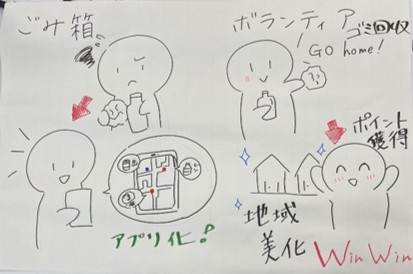 ごみ箱
ボランティア
ゴミ回収
GO home!
アプリ化!
ポイント
獲得
地域
美化
Win Win